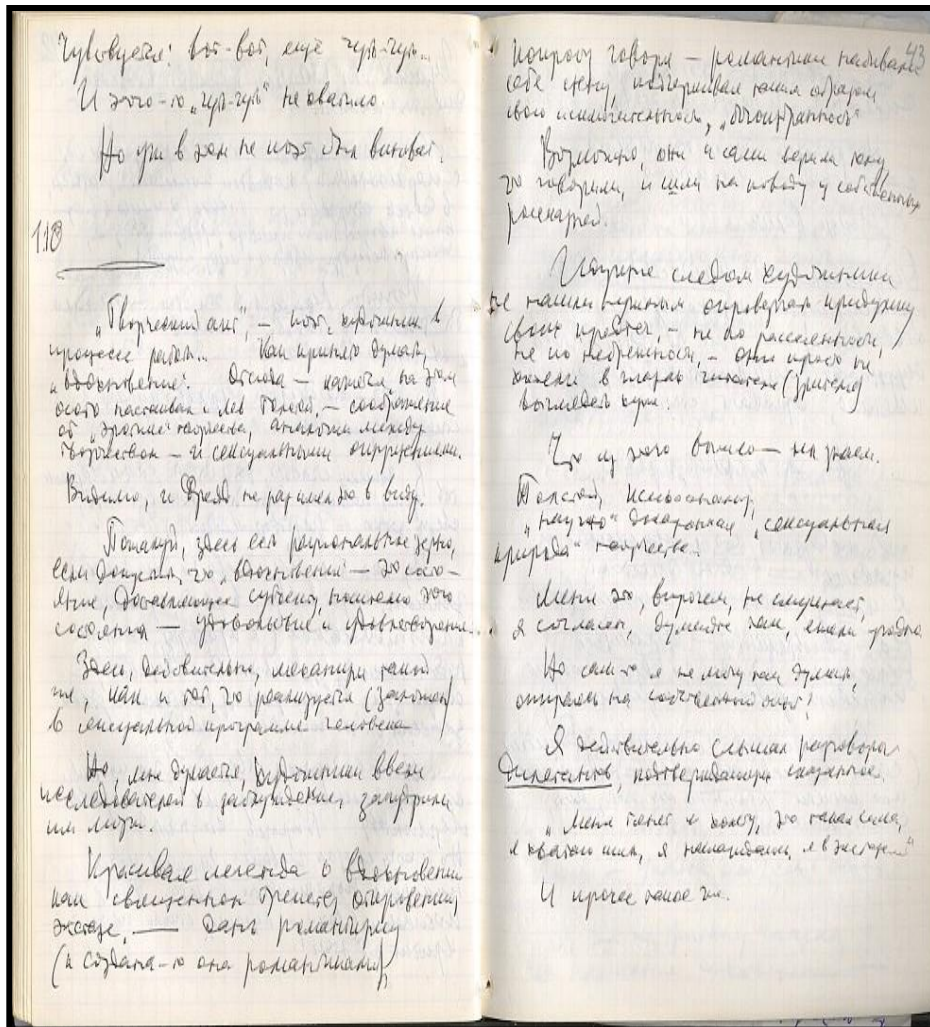 Чувствуется: вот-вот, ещё чуть-чуть...
И этого-то „чуть-чуть" не хватило
Но уж в этом не поэт был виноват.
110
„Творческий акт", – поэт, художник в
процессе работы... Как принято думать,
„вдохновение". Отсюда – кажется, на этом
особо настаивал и Лев Толстой, – соображение
об „эротике" творчества, аналогии между
творчеством – и сексуальными ощущениями.
Видимо, и Фрейд не разделял это в виду.
Пожалуй, здесь есть рациональное зерно,
если допустить, что „вдохновение" – это состо-
яние, доставляющее субъекту, носителю этого
состояния – удовольствие и удовлетворение.
Здесь, действительно, механизм такой
же, как и тот, что реализуется (заложен)
в сексуальной программе человека
Но, мне думается, художники ввели
исследователей в заблуждение, запудрили
им мозги.
Красивая легенда о вдохновении
как священном трепете, откровении,
экстазе, — дань романтизму
(и создана-то она романтиками),
43
попросту говоря – романтики набивали
себе цену, подчеркивая таким образом
свою исключительность, „богоизбранность"
Возможно, они и сами верили тому,
что говорили, и шли на поводу у собственных
россказней.
Идущие следом художники
не нашли нужным опровергать придумку
своих предтеч, – не по рассеянности,
не по небрежности, – они просто не
хотели в глазах читателя (зрителя)
выглядеть хуже.
Что из этого вышло – мы знаем.
Толстой,
„научно" доказанная „сексуальная
природа" творчества...
Меня это, впрочем, не смущает,
я согласен, думайте так, коли угодно
Но сам-то я не могу так думать,
опираясь на собственный опыт!
Я действительно слышал разговоры
дилетантов, подтверждающих сказанное.
„Меня тянет к холсту, это такая сила,
я хватаю кисть, я наслаждаюсь, я в экстазе"
И прочее такое же.